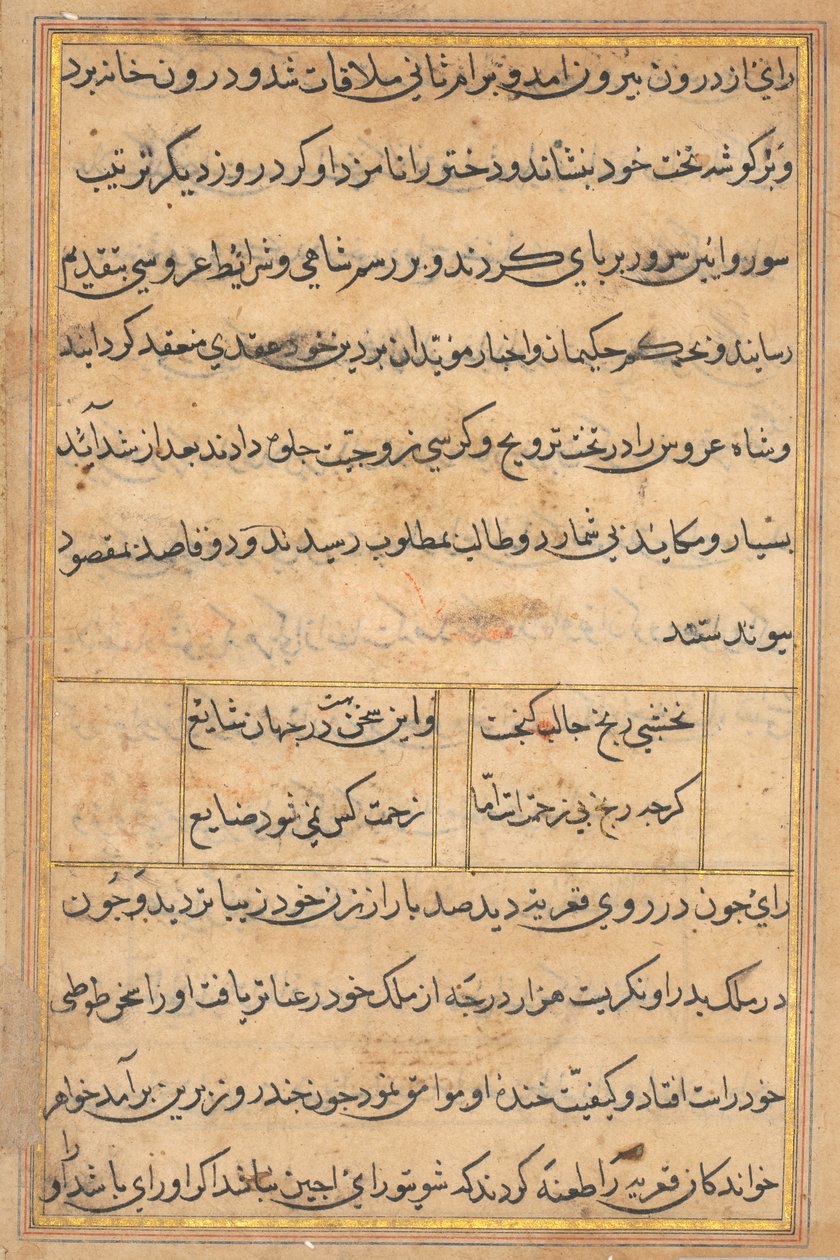 رای از درون بیرون امد و برام ثانی ملاقات شد و درون خانه برد
و بر کوشه تخت خود بنشاند و دختر را نامزد او کرد روز دیکر ترتیب
سور و ائین سرور بر پای کردند و بر رسم شاهی و شرائط عروسی بتقدیم
رسانید و بحکم حکیمان و اخبار مؤبدان بر دین خود عقدی منعقد کردانید
و شاه عروس را در تخت ترویج و کرسی زوجیت جلوه دادند بعد از شدائد
بسیار و مکاید بی شمار دو طالب بمطلوب رسیدند و دو قاصد بمقصود
بیوندستند
نخشبی رنج جالب کنجت واین سخن هست در جهان شایع
کرجه رنج بی زحمت است اما زحمت کس نمی شود ضایع
رای جون در روی قعریه دید صد بار از زن خود زیباتر دید و جون
در ملک بدر او نکریست هزار درجه از ملک خود رعناتر یافت او را سخن طوطی
خود راست افتاد و کیفیت خنده او موافق نمود جون جند روز برین برامد خواهر
خواندکان قعریه را طعنه کردند که شوی تو رای اجین نباشد اکر او رای باشد او را